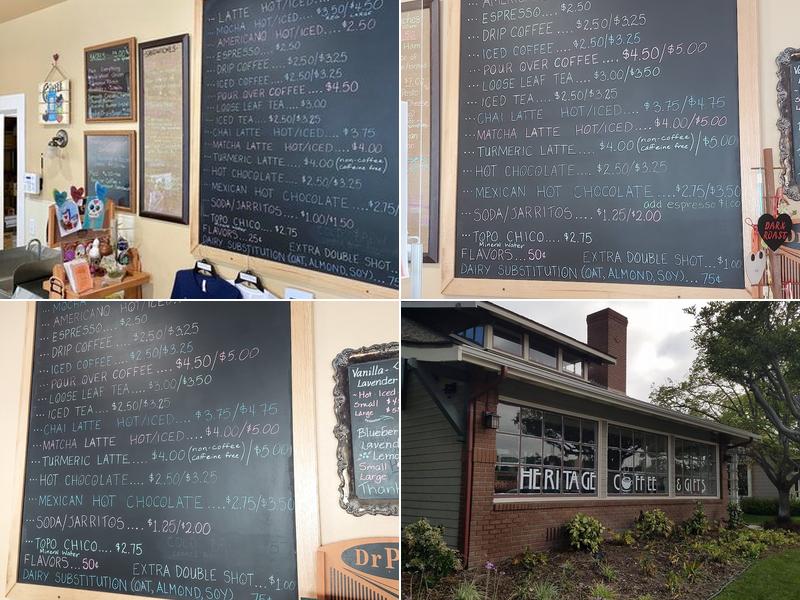 LATTE HOT/ICED.... $3.50/$4.50
MOCHA HOT/ICED
AMERICANO HOT/ICED... $2.50
... ESPRESSO... $2.50
... DRIP COFFEE... $2.50/$3.25
... ICED COFFEE... $2.50/$3.25
... POUR OVER COFFEE... $4.50
... LOOSE LEAF TEA.... $3.00
... ICED TEA... $2.50/$3.25
CHAI LATTE HOT/ICED.... $3.75
MATCHA LATTE HOT/ICED... $4.00
TURMERIC LATTE.... $4.00 (non-coffee)
caffeine free)
HOT CHOCOLATE... $2.50/$3.25
MEXICAN HOT CHOCOLATE.....$2.75/
SODA/JARRITOS... $1.00/$1.50
TOPO CHICO... $2.75
FLAVORS...25¢
EXTRA DOUBLE SHOT...
DAIRY SUBSTITUTION (OAT, ALMOND, SOY)... 75¢
BAGELS
SANDWICHES
AMERICANO HOT/ICED
... ESPRESSO... $2.50
... DRIP COFFEE... $2.50/$3.25
... ICED COFFEE... $2.50/$3.25
... POUR OVER COFFEE... $4.50/$5.00
... LOOSE LEAF TEA.... $3.00/$3.50
... ICED TEA... $2.50/$3.25
CHAI LATTE HOT/ICED.... $3.75/$4.75
... MATCHA LATTE HOT/ICED... $4.00/$5.00
... TURMERIC LATTE.... $4.00 (non-coffee) /$5.00
caffeine free)
... HOT CHOCOLATE... $2.50/$3.25
... MEXICAN HOT CHOCOLATE.....$2.75/$3.50
add espresso $1.00
... SODA/JARRITOS... $1.25/$2.00
... TOPO CHICO... $2.75
Mineral Water
FLAVORS...50¢
EXTRA DOUBLE SHOT...$1.00
DAIRY SUBSTITUTION (OAT, ALMOND, SOY)... 75¢
DARK
ROAST
MOCHA
... AMERICANO HOT/ICED
... ESPRESSO... $2.50
... DRIP COFFEE... $2.50/$3.25
... ICED COFFEE... $2.50/$3.25
... POUR OVER COFFEE... $4.50/$5.00
... LOOSE LEAF TEA.... $3.00/$3.50
... ICED TEA... $2.50/$3.25
... CHAI LATTE HOT/ICED.... $3.75/$4.75
... MATCHA LATTE HOT/ICED... $4.00/$5.00
... TURMERIC LATTE.... $4.00 (non-coffee) /$5.00
caffeine free)
... HOT CHOCOLATE... $2.50/$3.25
... MEXICAN HOT CHOCOLATE.....$2.75/$3.50
... SODA/JARRITOS... $1.25/$2.00
... TOPO CHICO... $2.75
Mineral Water
FLAVORS...50¢
EXTRA DOUBLE SHOT...$1.00
DAIRY SUBSTITUTION (OAT, ALMOND, SOY)... 75¢
Vanilla-
Lavender
Hot Iced
Small
Large
Small
Large
DrP
HERITAGE COFFEE & GIFTS